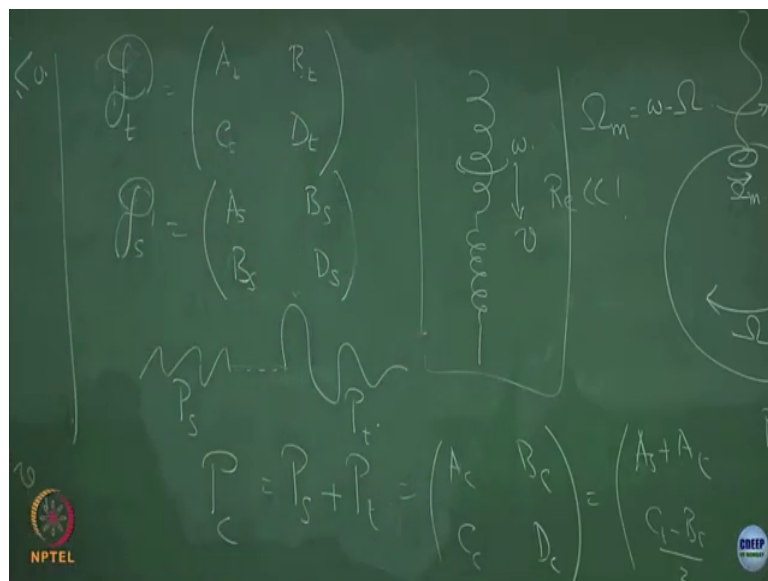 ≤0.
P_t = ( A_t B_t
C_t D_t )
P_s = ( A_s B_s
B_s D_s )
ω.
v
Re << !
Ω_m = ω - Ω
Ω_m
Ω
P_s P_t.
P_c = P_s + P_t = ( A_c B_c
C_c D_c ) = ( A_s + A_t
v
NPTEL
CDEEP